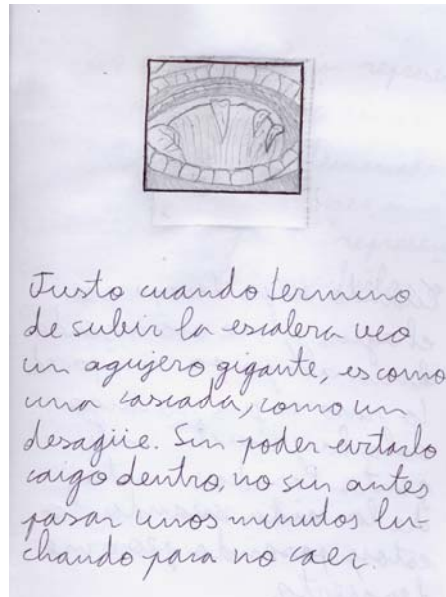 Justo cuando termino
de subir la escalera veo
un agujero gigante, es como
una cascada, como un
desagüe. Sin poder evitarlo
caigo dentro, no sin antes
pasar unos minutos lu-
chando para no caer.